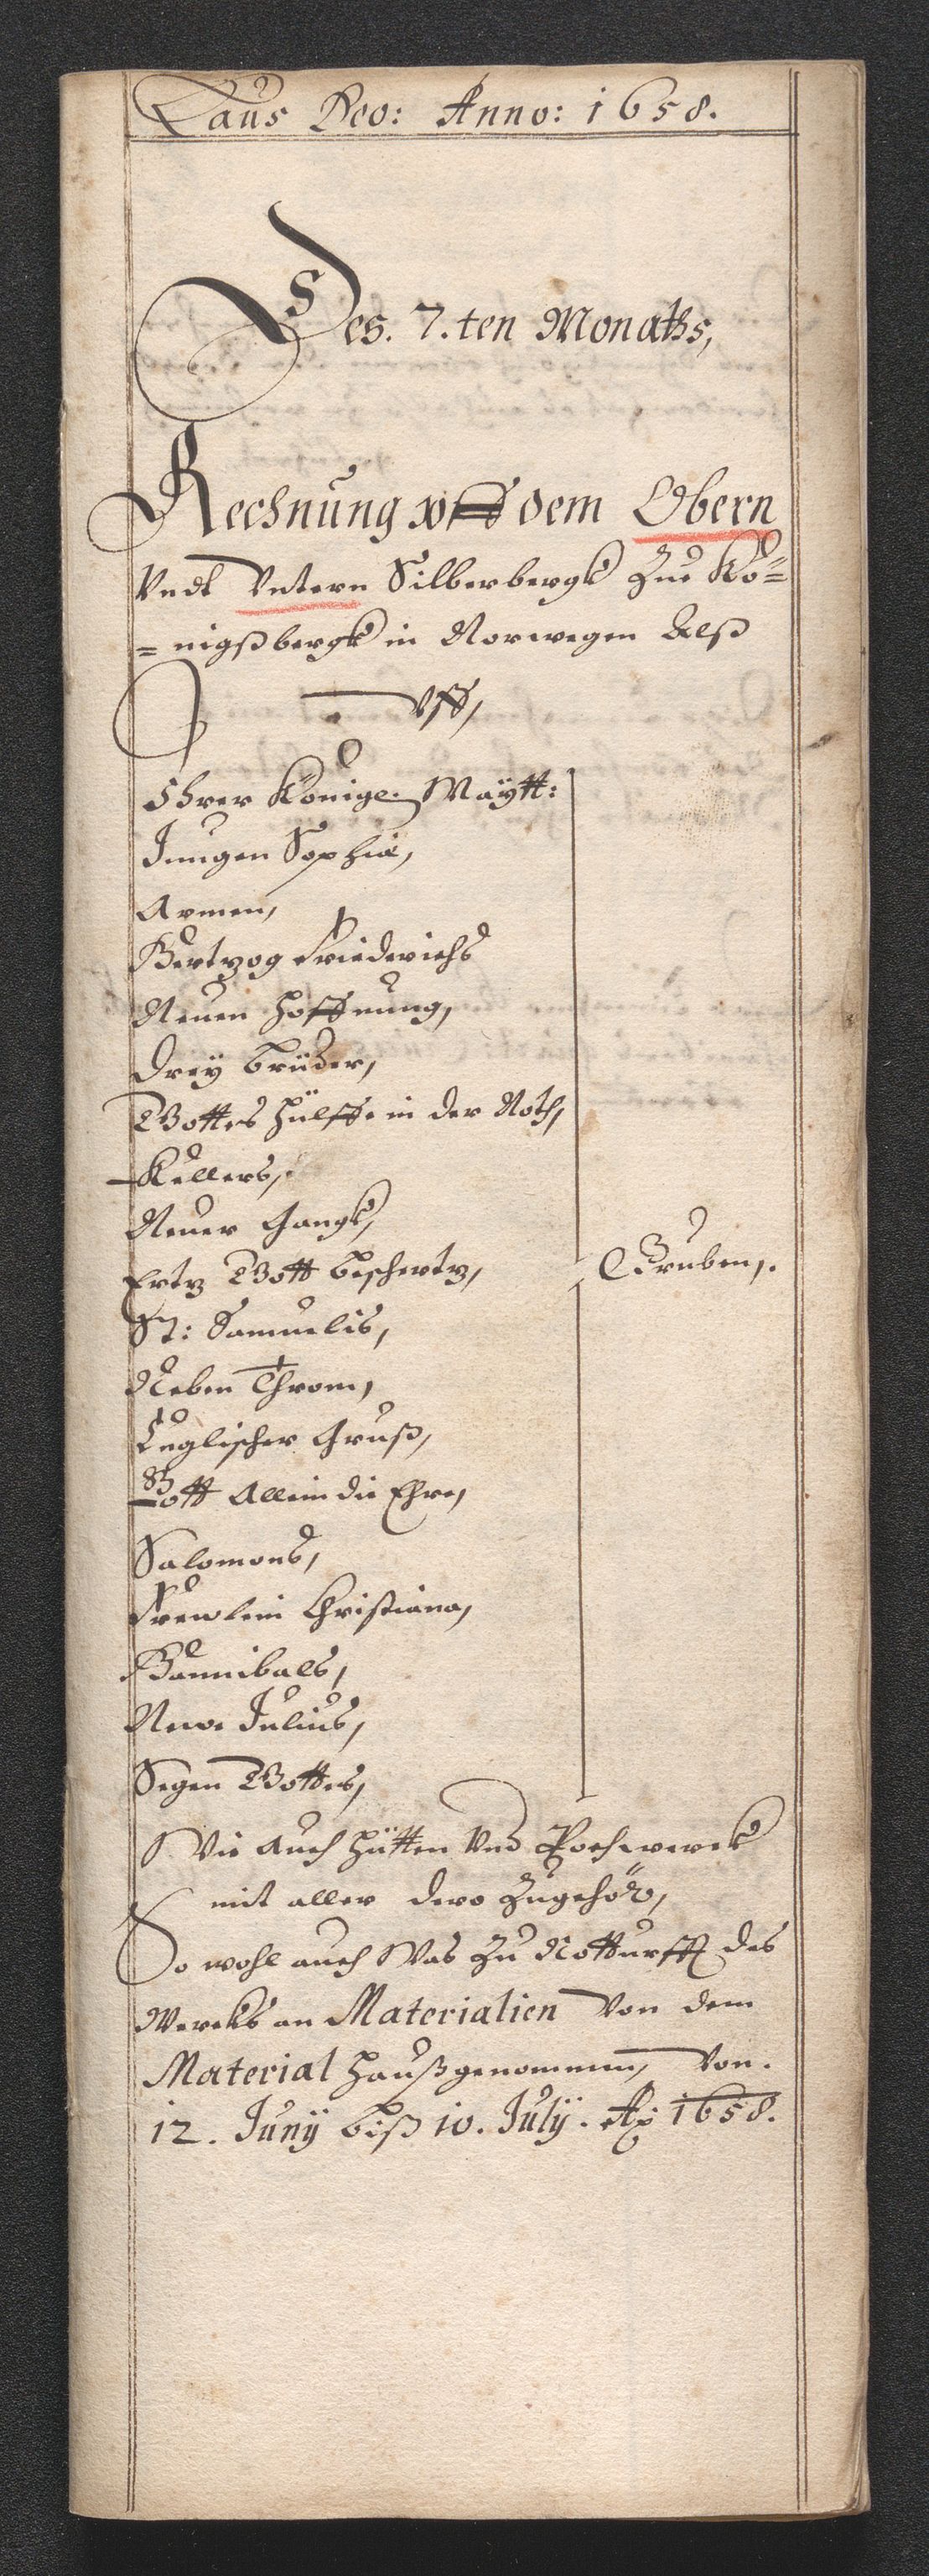 Laus Deo: Anno: 1658.
Des. 7.ten Monaths,
Rechnung vff dem Obern
Vndt Vntern Silberbergk Zue Kö=
=nigßbergk in Norwegen Alß
Vff,
Ihrer Königl. Maÿtt:
Jungen Sophia,
Armen,
Hertzog Friederichs
Neuen Hoffnung,
Dreÿ Brüder,
Gottes Hülffe in der Noth,
Kellers,
Neuer Gangk,
Ertz Gott beschertz,
Gruben,.
St: Samuelis,
Neben Throm,
Englischer Gruß,
Gott Allein die Ehre,
Salomons,
Frewlein Christiana,
Hannibals,
Newe Julius,
Segen Gottes,
Wie Auch Hütten Vnd Pochwerck
mit aller dero Zugehör,
So wohl auch Was Zu Notturfft des
Wercks an Materialien Von dem
Material Hauß genommen, Von.
12. Junÿ biß 10. Julÿ. Ao 1658.